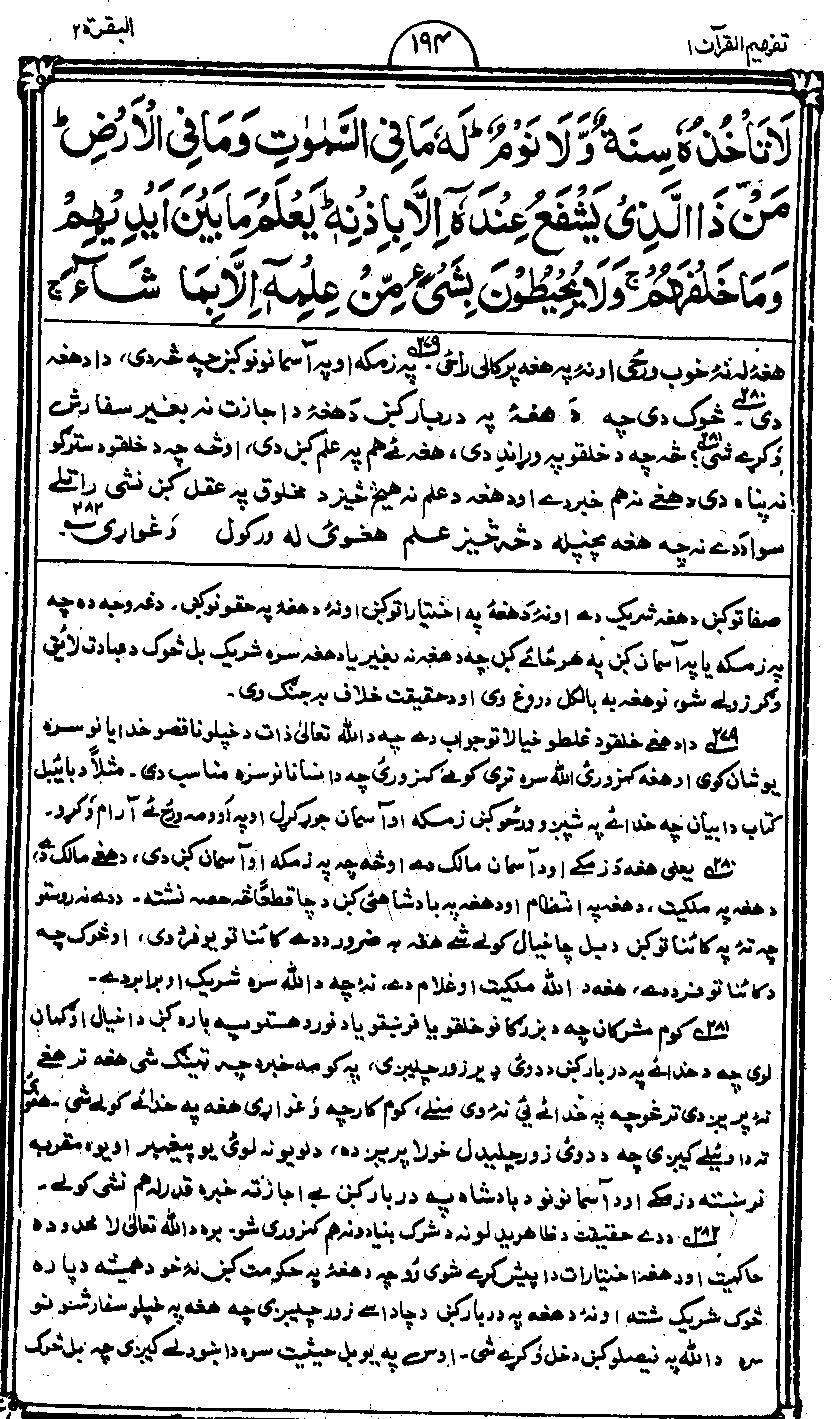 تفهيم القرآن ۱
۱۹۴
البقرة ۲
لَا تَاْخُذُهٗ سِنَةٌ وَّلَا نَوْمٌ ؕ لَهٗ مَا فِي السَّمٰوٰتِ وَمَا فِي الْاَرْضِ ؕ
مَنْ ذَا الَّذِيْ يَشْفَعُ عِنْدَهٗٓ اِلَّا بِاِذْنِهٖ ؕ يَعْلَمُ مَا بَيْنَ اَيْدِيْهِمْ
وَمَا خَلْفَهُمْ ۚ وَلَا يُحِيْطُوْنَ بِشَيْءٍ مِّنْ عِلْمِهٖٓ اِلَّا بِمَا شَآءَ ۚ
هغهٔ له نهٔ خوب ورځی او نهٔ په هغه پرکالی راځی ۲۷۹ـ په زمکه او په آسمانونو کښ چه څه دی، د هغه
دی ۲۸۰ـ څوک دی چه دَ هغهٔ په دربار کښ دَ هغهٔ د اجازت نه بغیر سفارش
وَکړے شی ۲۸۱؟ څه چه د خلقو په وړاندِ دی، هغه ئے هم په علم کښ دی، او څه چه د خلقو د سترګو
نه پناه دی د هغے نه هم خبر دے او د هغه د علم نه هیڅ څیز د مخلوق په عقل کښ نشی راتللے
سوا د دے نه چه هغه پخپله د څه څیز علم هغوئ له ورکول وَغواړی ۲۸۲ـ
صفاتو کښ د هغه شریک دے او نهٔ دَ هغهٔ په اختیاراتو کښ او نهٔ د هغه په حقونو کښ۔ دغه وجه ده چه
په زمکه یا په آسمان کښ په هر ځائے کښ چه د هغه نه بغیر یا د هغه سره شریک بل څوک د عبادت لائیق
وګرزولے شو، نو هغه به بالکل دروغ وی او د حقیقت خلاف به جنګ وی۔
۲۷۹ دا د هغے خلقو د غلطو خیالاتو جواب دے چه د الله تعالیٰ ذات د خپلو ناقصو خدایانو سره
یو شان کوی او هغه کمزورئ الله سره تړی کومے کمزورئ چه د انسانانو سره مناسب دی۔ مثلاً د بائیبل
کتاب دا بیان چه خدائے په شپږو ورځو کښ زمکه او آسمان جوړ کړل او په اوومه ورځ ئے آرام وَکړو۔
۲۸۰ یعنی هغه دَ زمکے او د آسمان مالک دے او څه چه په زمکه او آسمان کښ دی، د هغے مالک دے،
د هغه په ملکیت، د هغه په انتظام او د هغه په بادشاهئ کښ د چا قطعاً څه حصه نشته۔ د دے نه روستو
چه تهٔ په کائناتو کښ د بل چا خیال کولے شے هغه به ضرور د دے کائناتو یو فرد وی، او څوک چه
د کائناتو فرد دے، هغه د الله ملکیت او غلام دے، نهٔ چه د الله سره شریک او برابر دے۔
۲۸۱ کوم مشرکان چه د بزرګانو خلقو یا فرښتو یا د نورو هستو په باره کښ دا خیال او ګمان
لری چه د خدائے په دربار کښ د دوئ ډیر زور چلیږی، په کومه خبره چه ټینګ شی هغه تر هغے
نهٔ پریږدی ترڅو چه په خدائے ئي نهٔ وی منلے، کوم کار چه وَغواړی هغه په خدائے کولے شی۔ هغوئ
ته دا وئیلے کیږی چه د دوئ زور چلیدل خو لا پریږده، د لویو نه لوئ یو پیغمبر او یوه مقربه
فرښته د زمکے او د آسمانونو د بادشاه په دربار کښ بے اجازته خبره قدرله هم نشی کولے۔
۲۸۲ د دے حقیقت د ظاهریدلو نه د شرک بنیادونه هم کمزوری شو۔ بره د الله تعالیٰ لا محدوده
حاکمیت او د هغهٔ اختیارات دا پیش کړے شوی وُو چه د هغهٔ په حکومت کښ نهٔ خو د همیشه دپاره
څوک شریک شته او نهٔ د هغه په دربار کښ د چا داسے زور چلیږی چه هغه په خپلو سفارشونو
سره د الله په فیصلو کښ دخل وَکړے شی۔ اوس په یو بل حیثیت سره دا ښودلے کیږی چه بل څوک